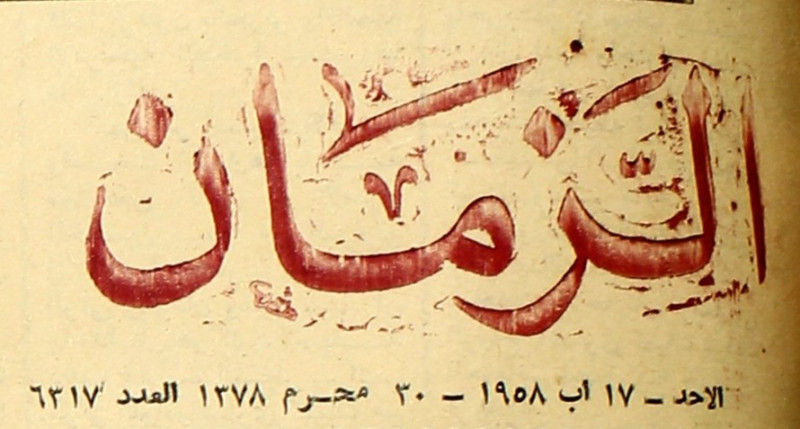 الزمان
الاحد - ١٧ آب ١٩٥٨ - ٣٠ محرم ١٣٧٨ العدد ٦٣١٧